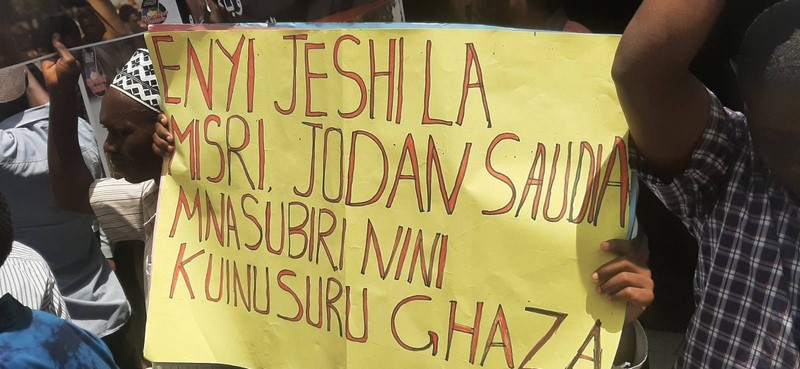 ENYI JESHI LA
MISRI, JODAN SAUDIA
MNASUBIRI NINI
KUINUSURU GHAZA